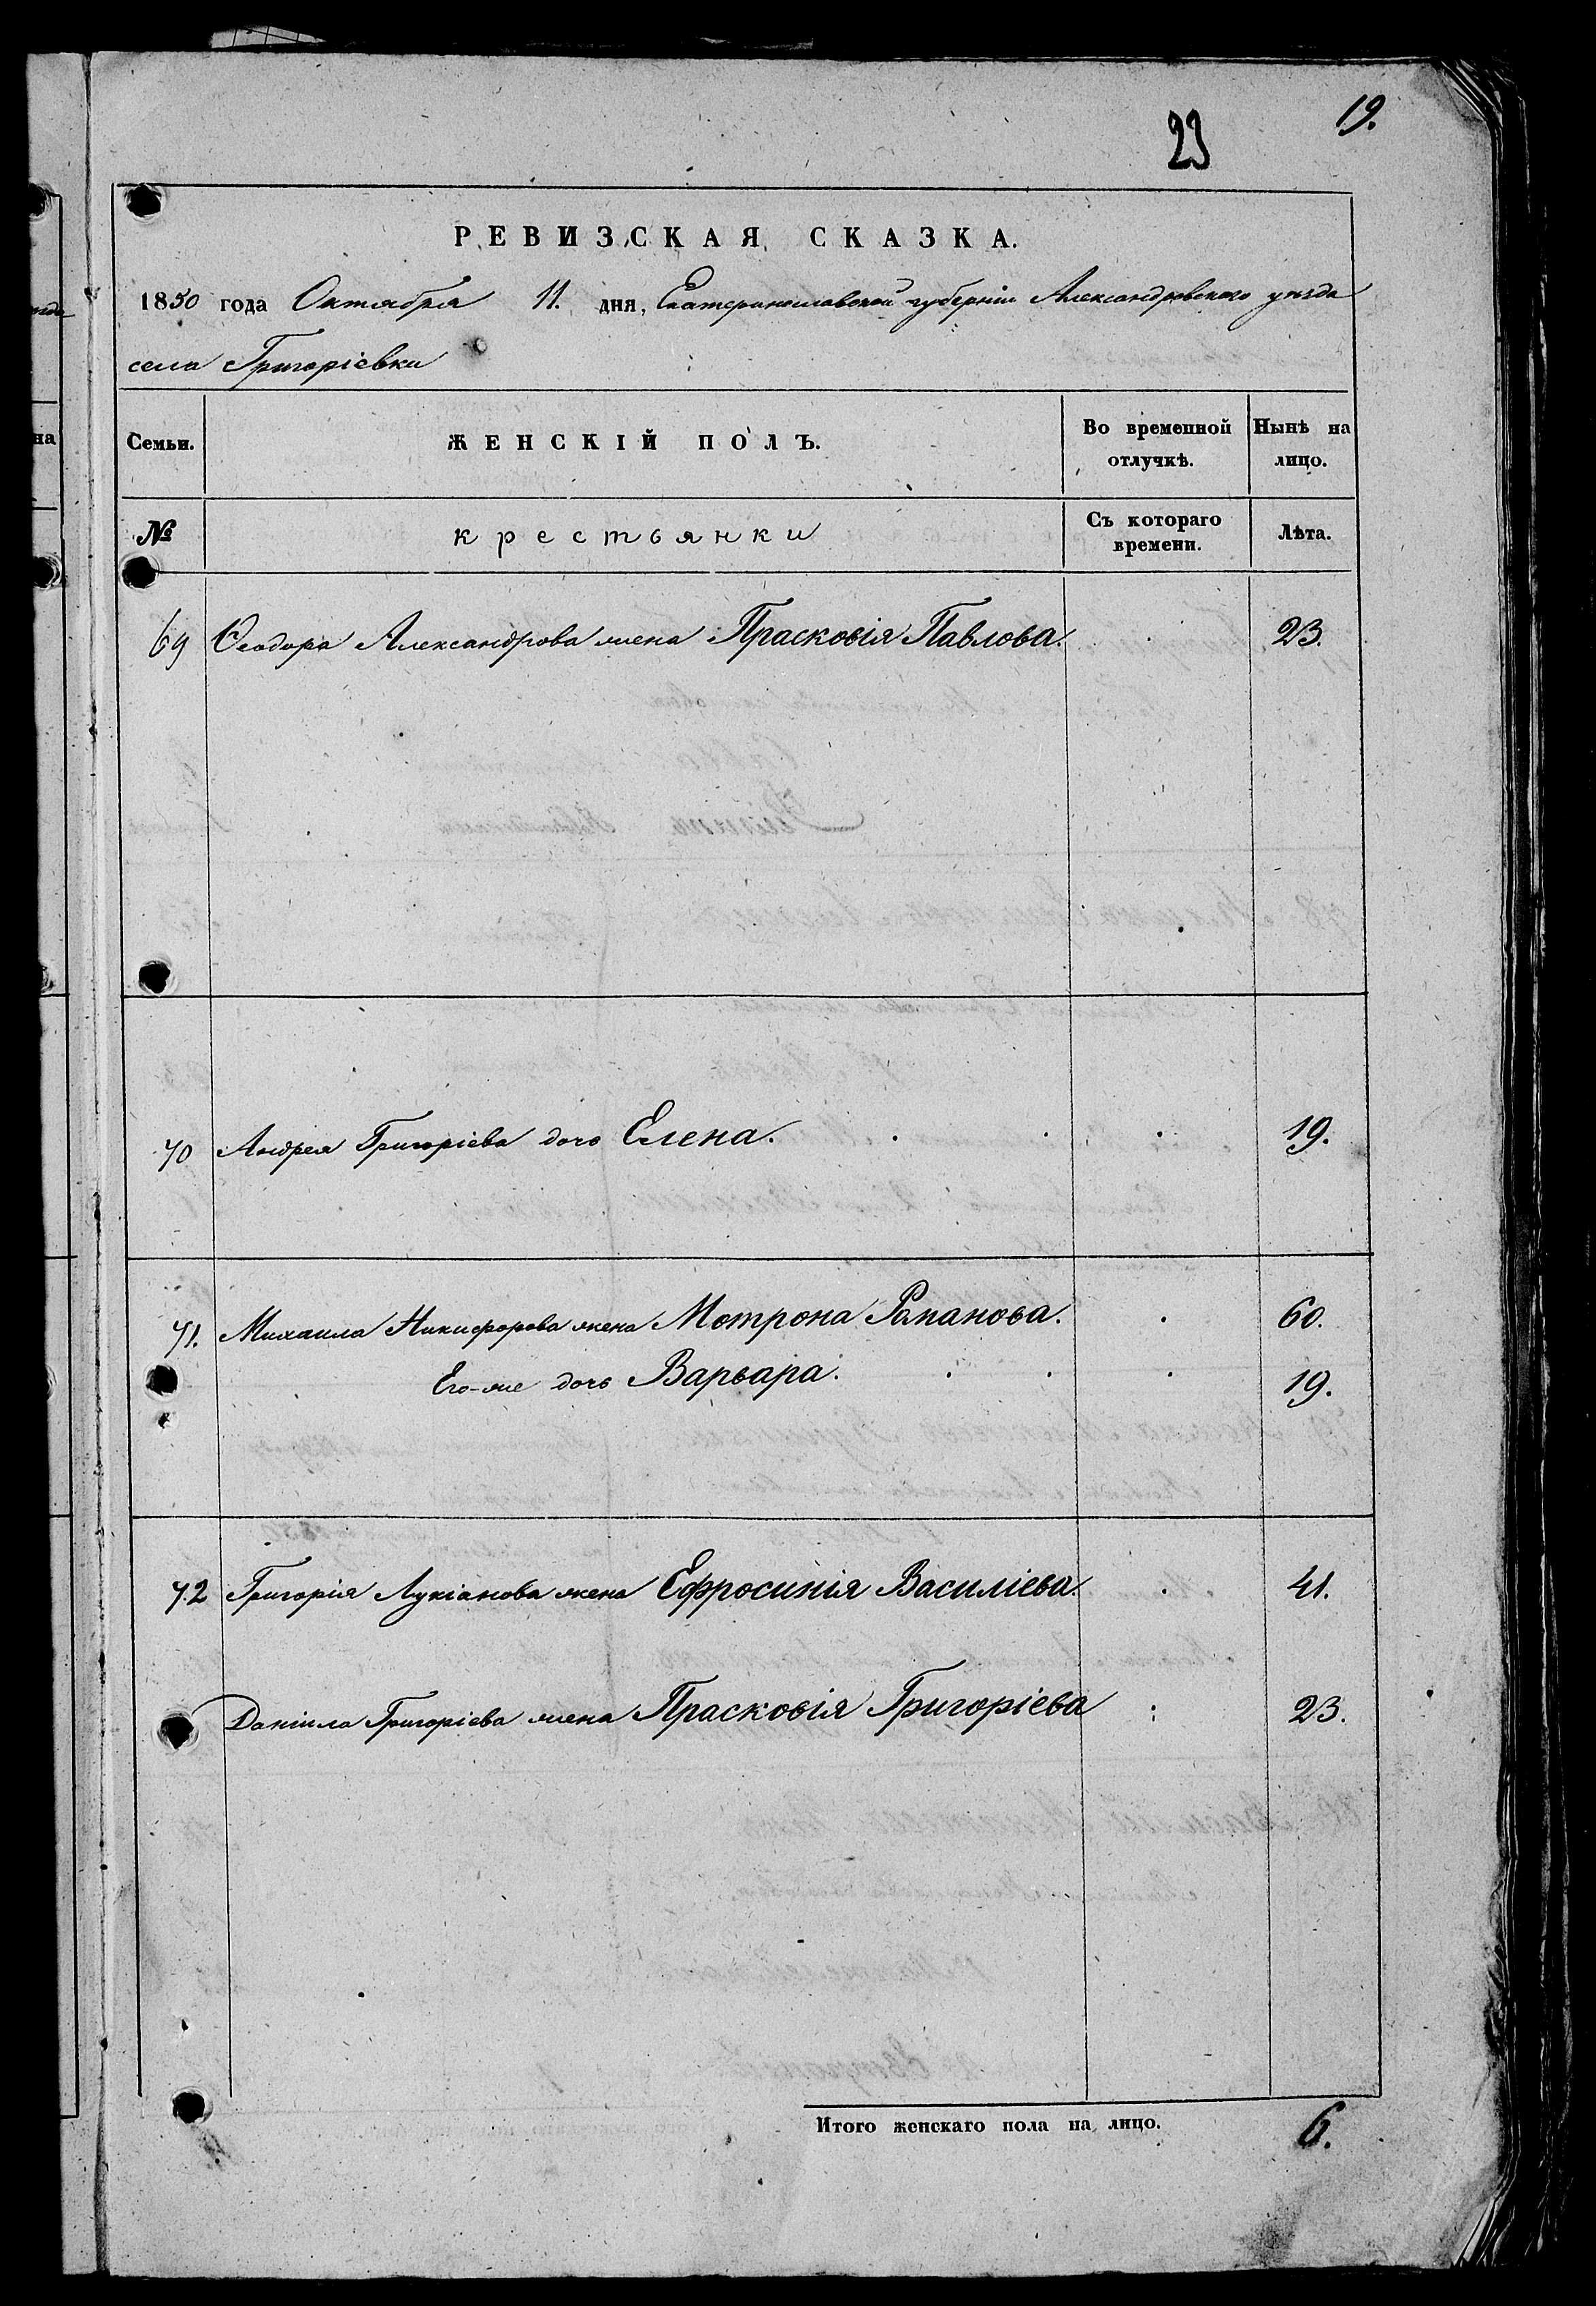 19.
23
РЕВИЗСКАЯ СКАЗКА.
1850 года Октября 11. дня, Екатеринославской губерніи Александровского уѣзда
села Григоріевки
Семьи.
ЖЕНСКІЙ ПОЛЪ.
Во временной отлучкѣ.
Нынѣ на лицо.
№
крестьянки
Съ котораго времени.
Лѣта.
69 Ѳеодора Александрова жена Прасковія Павлова. 23.
70 Андрея Григоріева дочь Елена. 19.
71. Михаила Никифорова жена Мотрона Романова. 60.
Его-же дочь Варвара. 19.
72 Григорія Лукіанова жена Ефросинія Василіева. 41.
Даніила Григоріева жена Прасковія Григоріева 23.
Итого женскаго пола на лицо. 6.